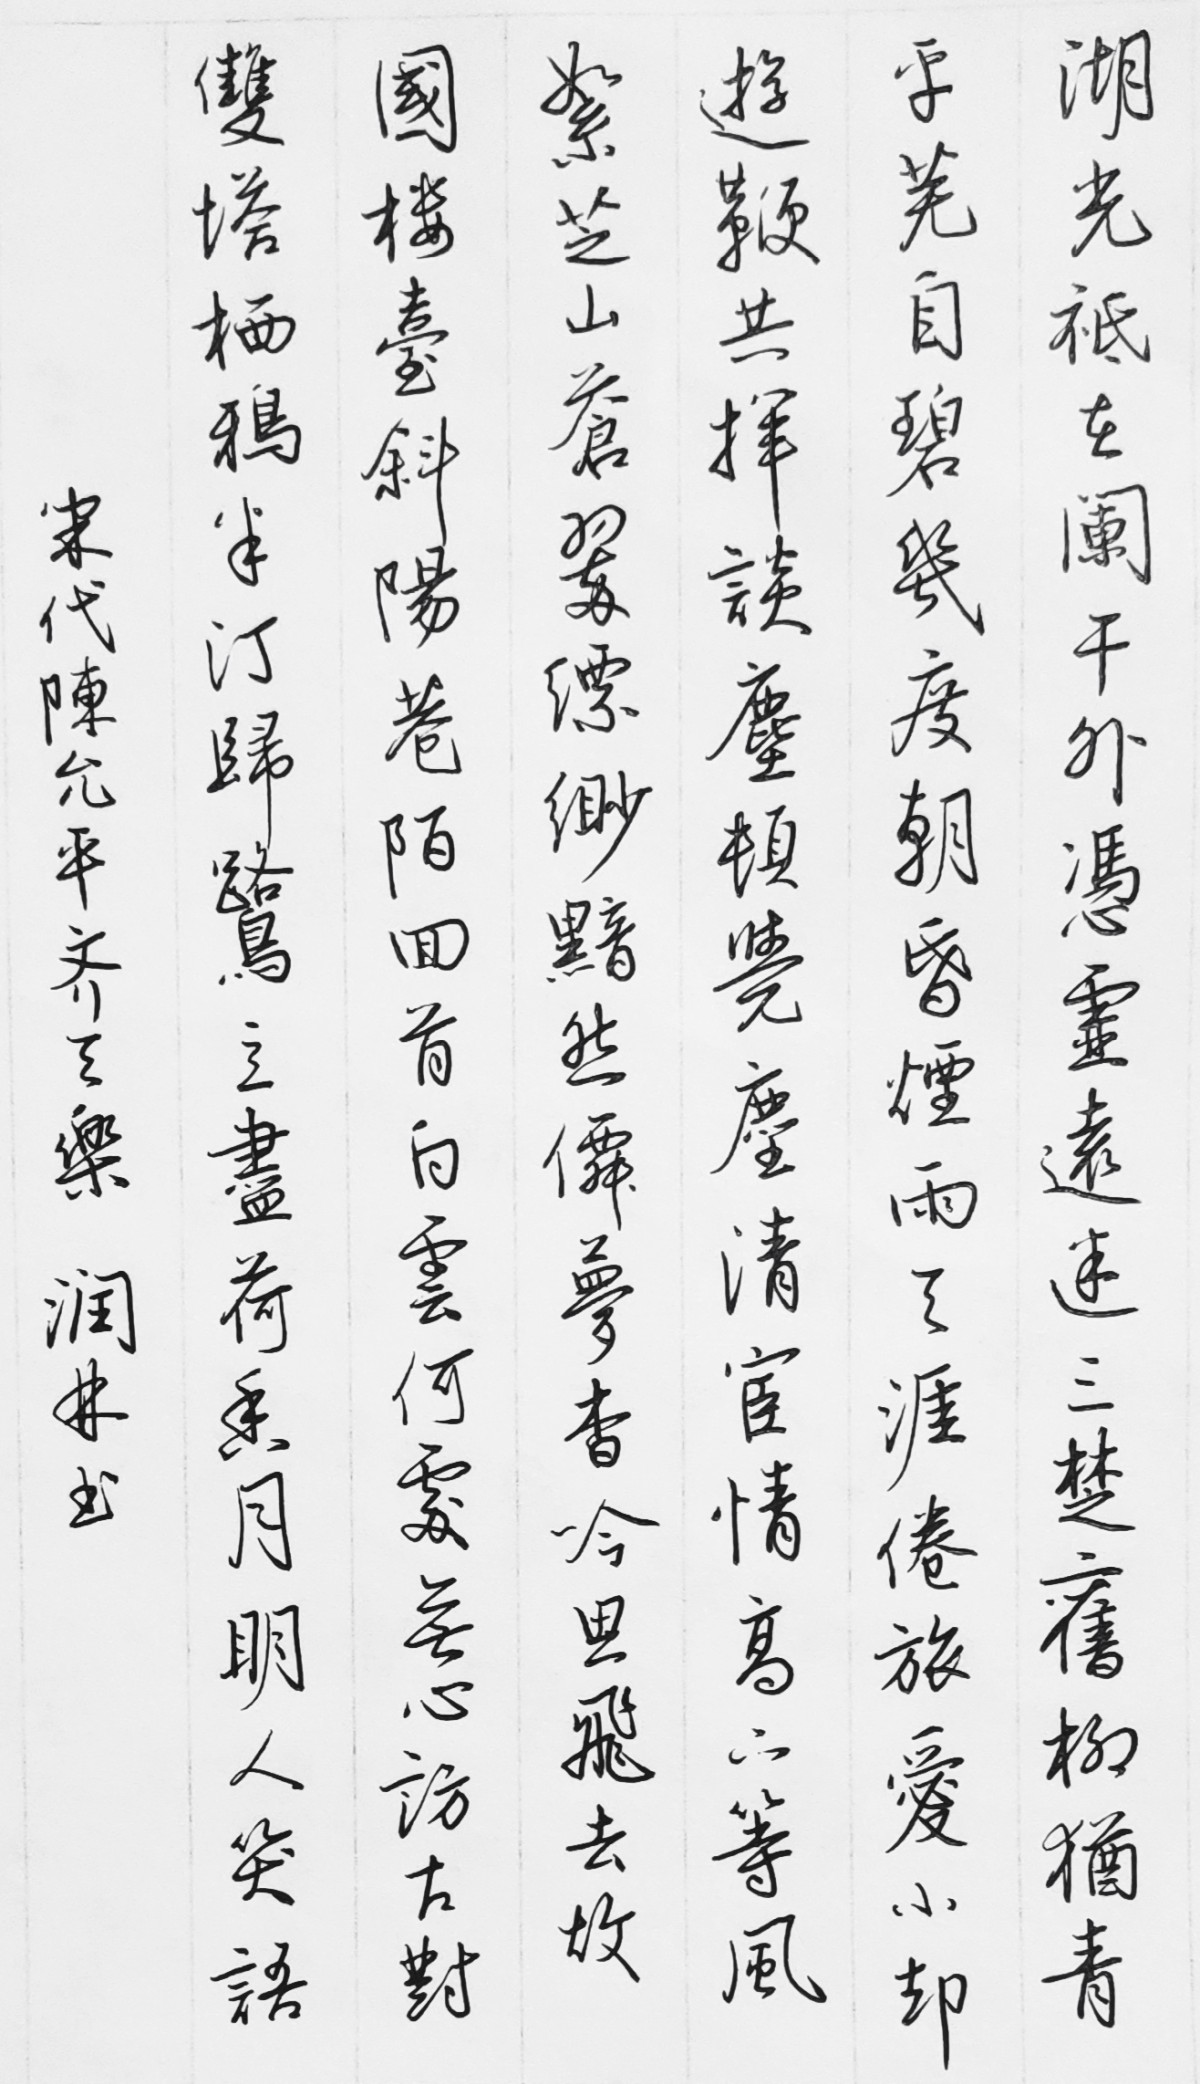 湖光祗在闌干外憑靈遠迷三楚舊柳猶青
平蕪自碧幾度朝昏煙雨天涯倦旅愛小却
遊鞭共揮談麈頓覺塵清宦情高下等風
絮芝山蒼翠縹緲黯然僊夢杳吟思飛去故
國樓臺斜陽巷陌回首白雲何處無心訪古對
雙塔栖鴉半汀歸鷺立盡荷香月明人笑語
宋代陳允平齐天樂 润林书